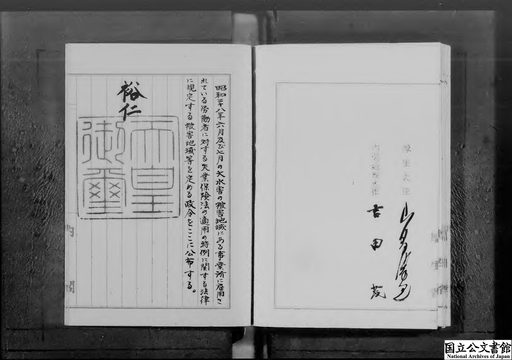 昭和二十八年六月及び七月の大水害の被害地域にある事業所に雇用さ
れている労働者に対する失業保険法の適用の特例に関する法律
に規定する被害地域等を定める政令をここに公布する。
裕仁
天皇
御璽
内閣総理大臣
吉田茂
国立公文書館
National Archives of Japan